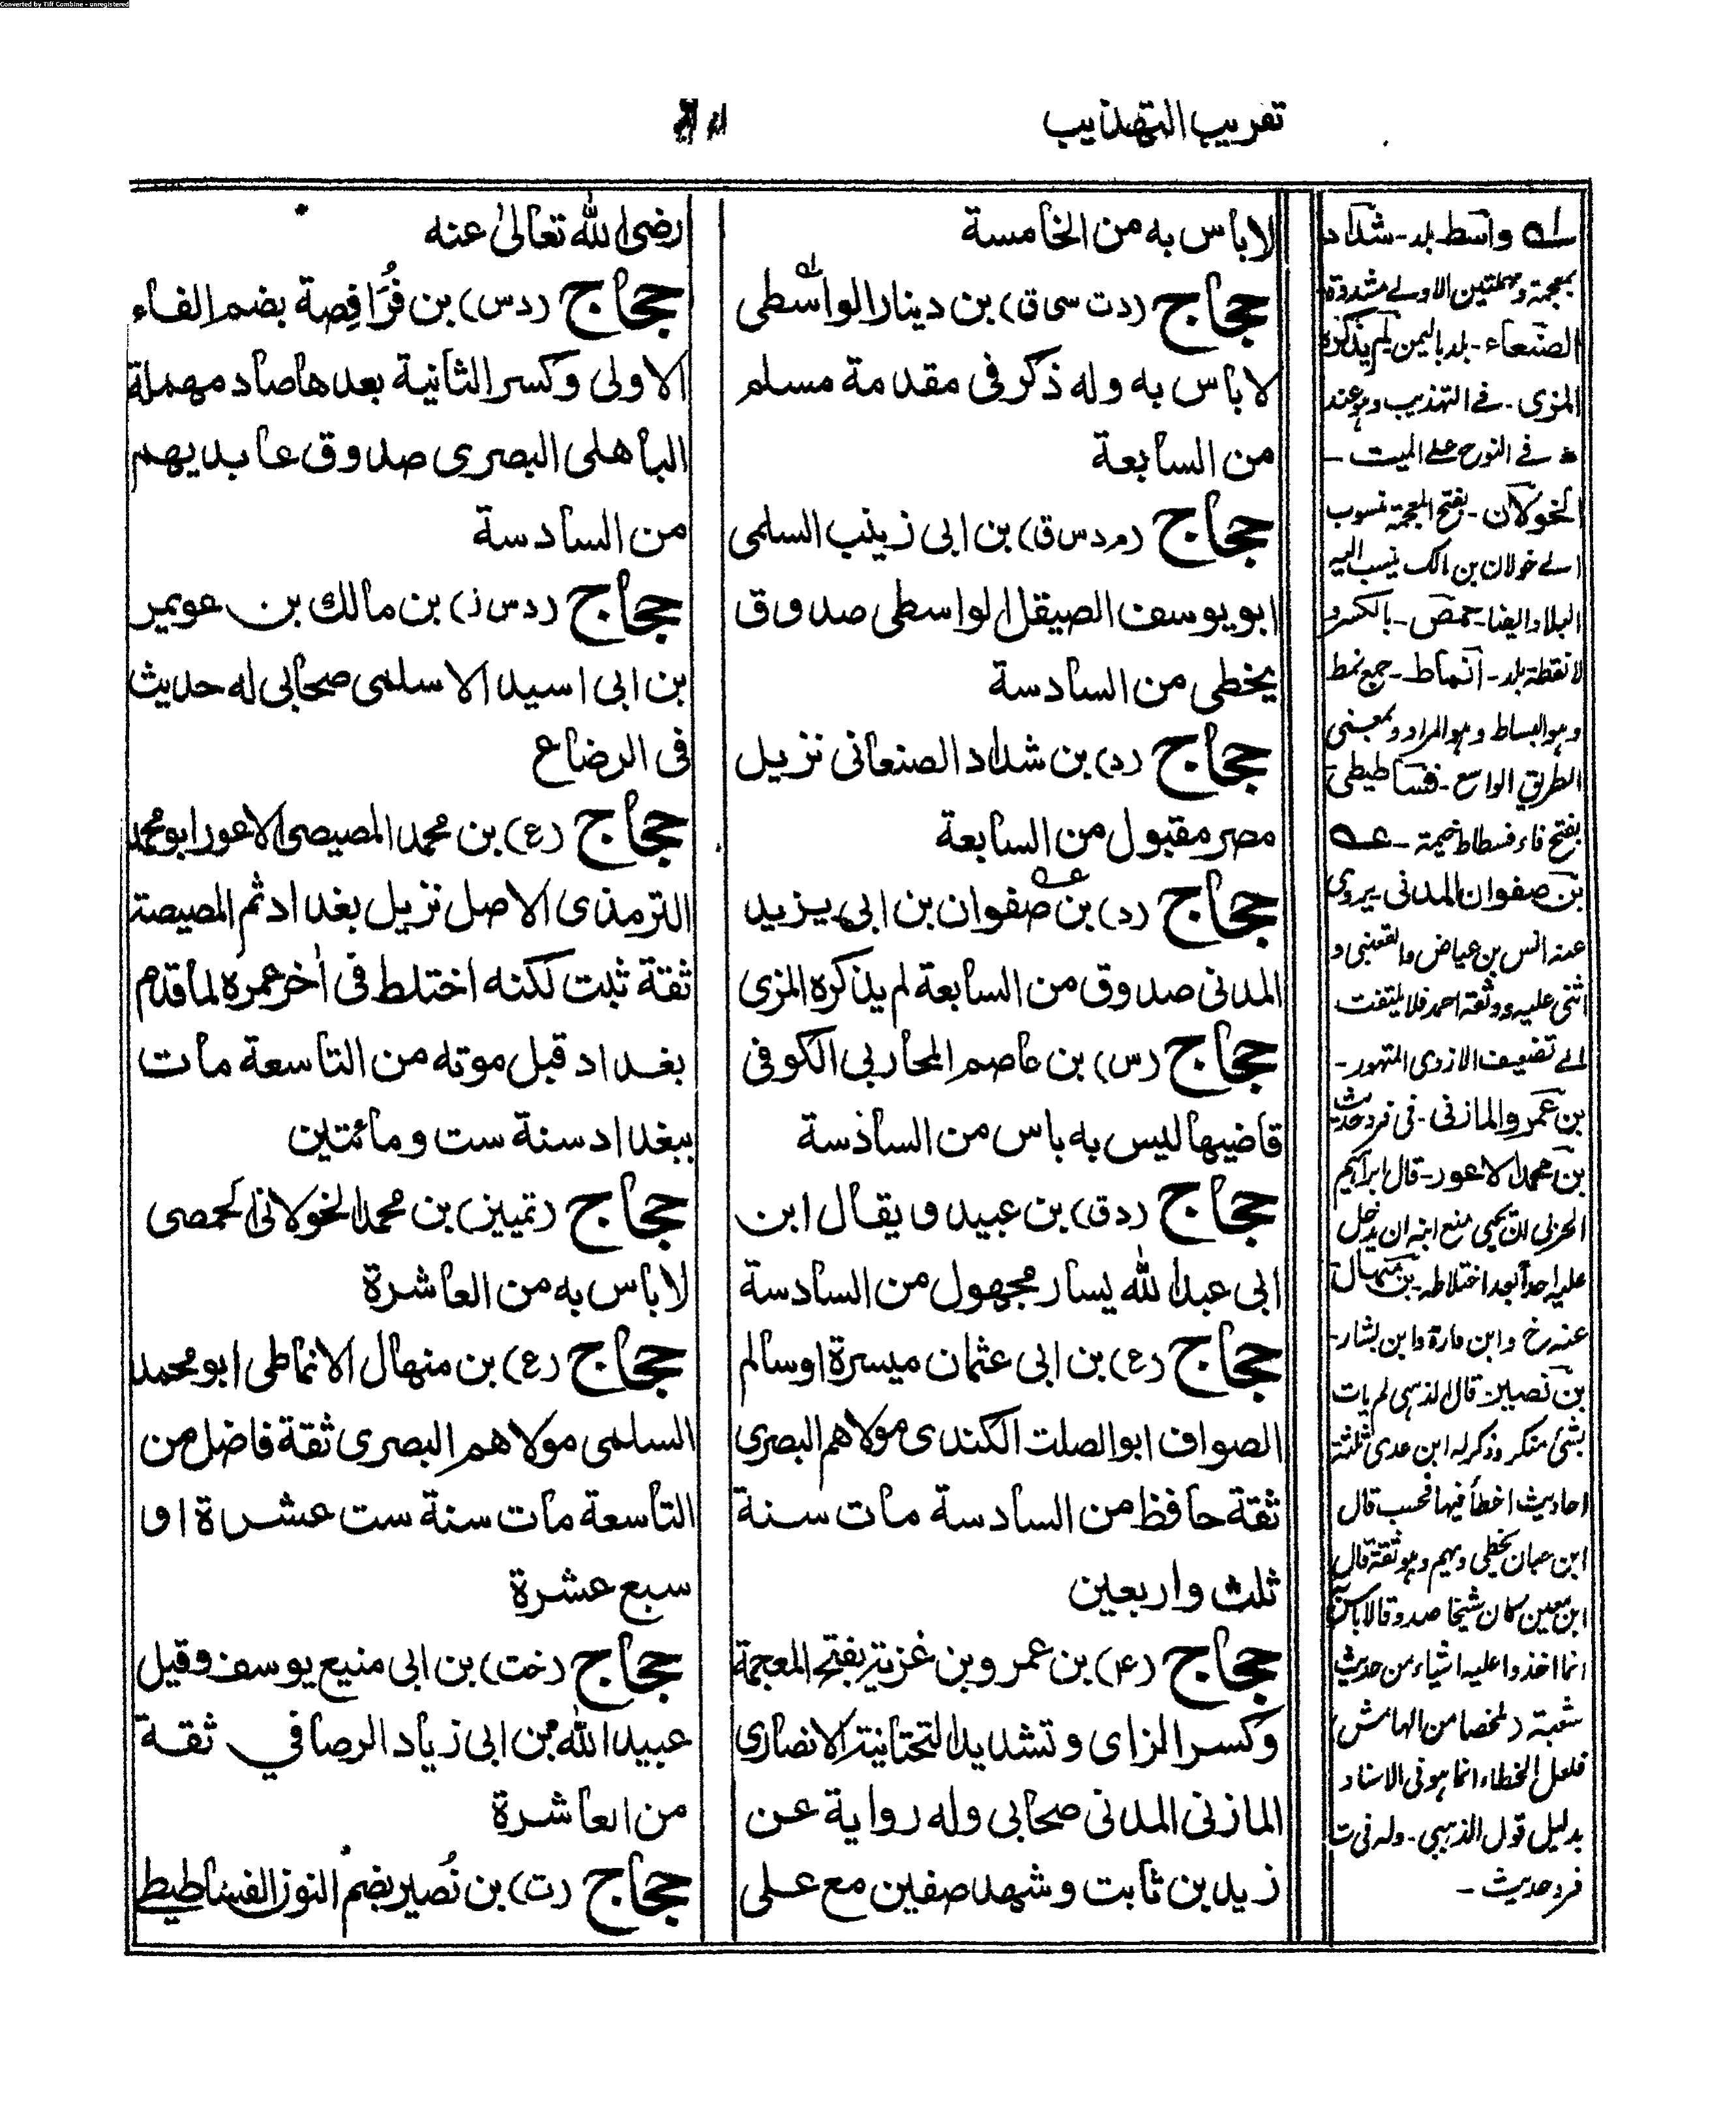 Converted by Tiff Combine - unregistered
تقريب التهذيب
لاباس به من الخامسة
حجاج (دت سی ق) بن دينار الواسطی
لاباس به وله ذكر فی مقدمة مسلم
من السابعة
حجاج (م د س ق) بن ابی زينب السلمی
ابو يوسف الصيقل الواسطی صدوق
يخطی من السادسة
حجاج (د) بن شداد الصنعانی نزيل
مصر مقبول من السابعة
حجاج (د) بن صفوان بن ابی يزيد
المدنی صدوق من السابعة لم يذكره المزی
حجاج (س) بن عاصم المحاربی الكوفی
قاضيها ليس به باس من السادسة
حجاج (دق) بن عبيد ويقال ابن
ابی عبد الله يسار مجهول من السادسة
حجاج (ع) بن ابی عثمان ميسرة اوسالم
الصواف ابو الصلت الكندی مولاهم البصری
ثقة حافظ من السادسة مات سنة
ثلث واربعين
حجاج (۴) بن عمرو بن غزية بفتح المعجمة
وكسر الزای وتشديد التحتانية الانصاری
المازنی المدنی صحابی وله رواية عن
زيد بن ثابت وشهد صفين مع علی
رضی الله تعالیٰ عنه
حجاج (دس) بن فُرَافِصة بضم الفاء
الاولی وكسر الثانية بعدها صاد مهملة
الباهلی البصری صدوق عابد يهم
من السادسة
حجاج (دس ز) بن مالك بن عويمر
بن ابی اسيد الاسلمی صحابی له حديث
فی الرضاع
حجاج (ع) بن محمد المصيصی الاعور ابو محمد
الترمذی الاصل نزيل بغداد ثم المصيصة
ثقة ثبت لكنه اختلط فی اٰخر عمره لما قدم
بغداد قبل موته من التاسعة مات
ببغداد سنة ست ومائتين
حجاج (تمييز) بن محمد الخولانی الحمصی
لاباس به من العاشرة
حجاج (ع) بن منهال الانماطی ابو محمد
السلمی مولاهم البصری ثقة فاضل من
التاسعة مات سنة ست عشرة او
سبع عشرة
حجاج (خت) بن ابی منيع يوسف وقيل
عبيد الله بن ابی زياد الرصافی ثقة
من العاشرة
حجاج (ت) بن نُصير بضم النون الفساطيط
واسط بلد - شداد
بمعجمة ومهملتين الاولے مشددة
الصنعاء - بلد باليمن لم يذكره
المزی - فے التهذيب وهو عند
فے النوح علے الميت -
الخولان - بفتح المعجمة منسوب
الے خولان بن مالك ينسب اليه
البلاد ايضا - حمص - بالكسر و
لا نقطة بلد - انماط - جمع نمط
وهو البساط وهو المراد وبمعنی
الطريق الواسع - فساطيطی
بفتح فاء فسطاط خيمة - عه
بن صفوان المدنی يروی
عنه انس بن عياض والقعنبی و
اثنی عليه ووثقه احمد فلا يلتفت
الے تضعيف الازدی المتهور -
بن عمرو المازنی - فی فرد حديث
بن محمد الاعور - قال ابراهيم
الحربی ان يحيی منع ابنه ان يدخل
عليه احدا بعد اختلاطه - بن منهال
عنه خ وابن وارة وابن بشار -
بن نصير - قال الذهبی لم يات
بشئ منكر وذكر له ابن عدی ثلثة
احاديث اخطأ فيها فحسب قال
ابن حبان يخطی ويهم وهو ثقة قال
ابن معين كان شيخا صدوقا لاباس به
انما اخذوا عليه اشياء من حديث
شعبة ملخصا من الهامش
فلعل الخطاء انما هو فی الاسناد
بدليل قول الذهبی - وله فی ت
فرد حديث -